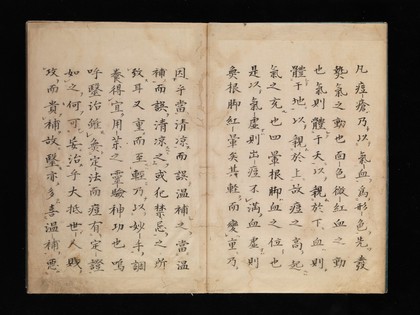 凡痘瘡乃以氣血爲形色先發
熱氣之動也面色微紅血之動
也氣則體于天以親於下血則
體于地以親於上故痘之高起
氣之充也四暈根脚血之位也
是以氣虛則出痘不滿血虛則
無根脚紅暈矣其輕而變重乃
因乎當清凉而誤温補之當温
補而誤清凉之或犯禁忌之所
致耳又重而至輕乃以妙手調
養得宜用藥之靈驗神功也嗚
呼醫治雖無定法而痘有定證
如之何可妄治乎大抵世人賤
攻而貴補故醫亦多喜温補惡